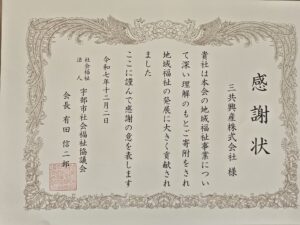 感謝状
三共興産株式会社 様
貴社は本会の地域福祉事業につい
て深い理解のもとご寄附をされ
地域福祉の発展に大きく貢献され
ました
ここに謹んで感謝の意を表します
令和七年十二月二日
社会福祉
法人
宇部市社会福祉協議会
会長 有田 信二郎